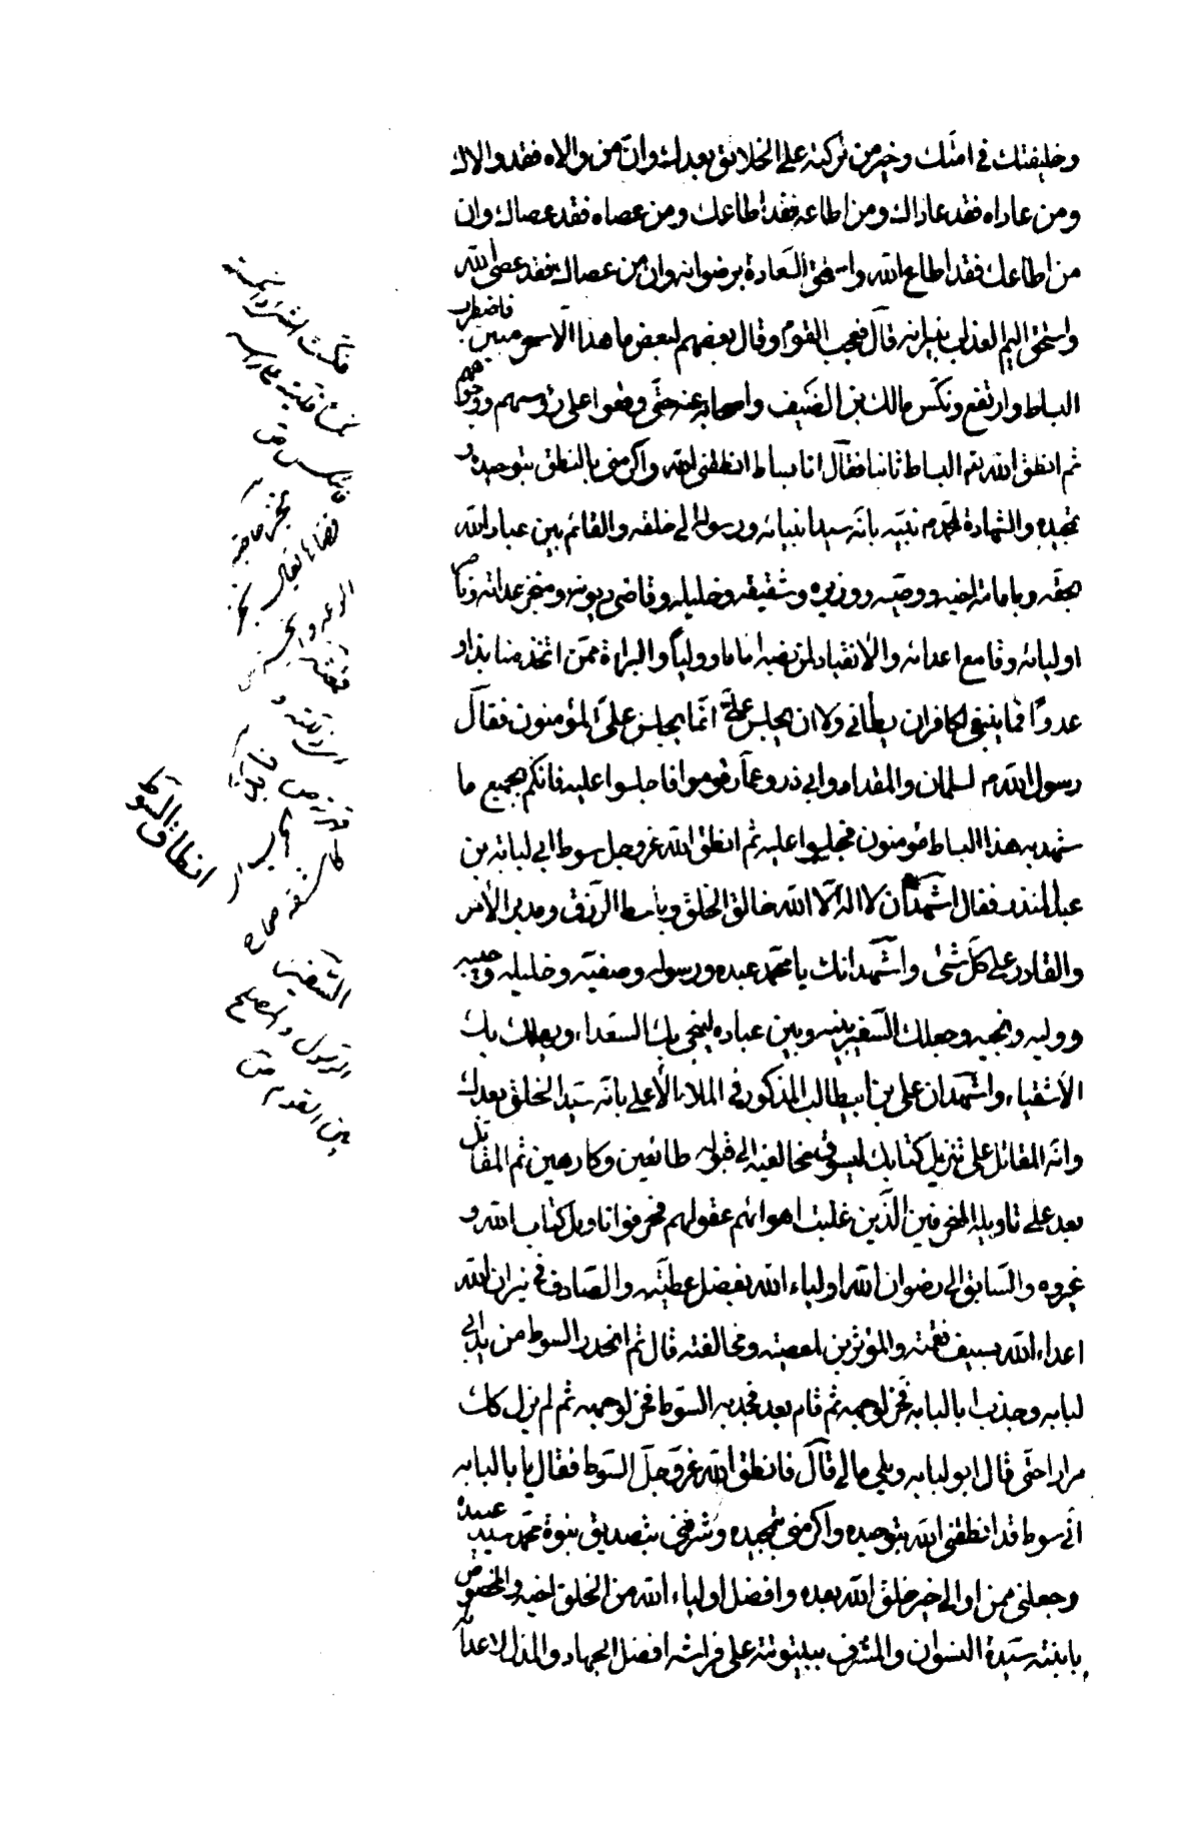 وخليفتك في امتك وخير من تركته على الخلائق بعدك وان من والاه فقد والاك
ومن عاداه فقد عاداك ومن اطاعه فقد اطاعك ومن عصاه فقد عصاك وان
من اطاعك فقد اطاع الله واستحق السعادة برضوانه وان من عصاك فقد عصى الله
واستحق اليم العذاب بنيرانه قال فعجب القوم وقال بعضهم لبعض ما هذا الا سحر مبين فاضطرب
البساط وارتفع ونكس مالك بن الضيف واصحابه عنه حتى وقعوا على رؤسهم ووجوههم
ثم انطق الله تع البساط ثانيا فقال انا بساط انطقني الله واكرمني بالنطق بتوحيده و
تمجيده والشهادة لمحمد م نبيه بانه سيد انبيائه ورسوله الى خلقه والقائم بين عباد الله
بحقه وبامامة اخيه ووصيه ووزيره وشقيقه وخليله وقاضي ديونه ومنجز عداته وناصر
اوليائه وقامع اعدائه والانقياد لمن نصبه اماما ووليا والبراءة ممن اتخذه منابذا و
عدوا فما ينبغي لكافر ان يطاني ولا ان يجلس علي انما يجلس علي المؤمنون فقال
رسول الله م لسلمان والمقداد وابي ذر وعمار قوموا فاجلسوا عليه فانكم بجميع ما
شهد به هذا البساط مؤمنون فجلسوا عليه ثم انطق الله عز وجل سوط ابي لبابة بن
عبد المنذر فقال اشهد ان لا اله الا الله خالق الخلق وباسط الرزق ومدبر الامر
والقادر على كل شئ واشهد انك يا محمد عبده ورسوله وصفيه وخليله وحبيبه
ووليه ونجيه وجعلك السفير بينه وبين عباده لينجي بك السعداء ويهلك بك
الاشقياء واشهد ان علي بن ابيطالب المذكور في الملاء الاعلى بانه سيد الخلق بعدك
وانه المقاتل على تنزيل كتابك ليسوق مخالفيه الى قبوله طائعين وكارهين ثم المقاتل
بعد على تاويله المحرفين الذين غلبت اهوائهم عقولهم فحرفوا تاويل كتاب الله و
غيروه والسابق الى رضوان الله اولياء الله بفضل عطيته والصادف في نيران الله
اعداء الله بسيف نقمته والمؤثرين لمعصيته ومخالفته قال ثم انحدر السوط من يد ابي
لبابه وجذب ابا لبابه فخر لوجهه ثم قام بعد فجذبه السوط فخر لوجهه ثم لم يزل كك
مرارا حتى قال ابو لبابه ويلي مالي قال فانطق الله عز وجل السوط فقال يا ابا لبابه
اني سوط قد انطقني الله بتوحيده واكرمني بتمجيده وشرفني بتصديق نبوة محمد سيد عبيده
وجعلني ممن اوالي خير خلق الله بعده وافضل اولياء الله من الخلق اخيه والمخصوص
بابنته سيدة النسوان والمشرف ببيتوتته على فراشه افضل الجهاد والمذل لاعدائه
انطاق السوط
السفير
الرسول والمصلح
بين القوم ص